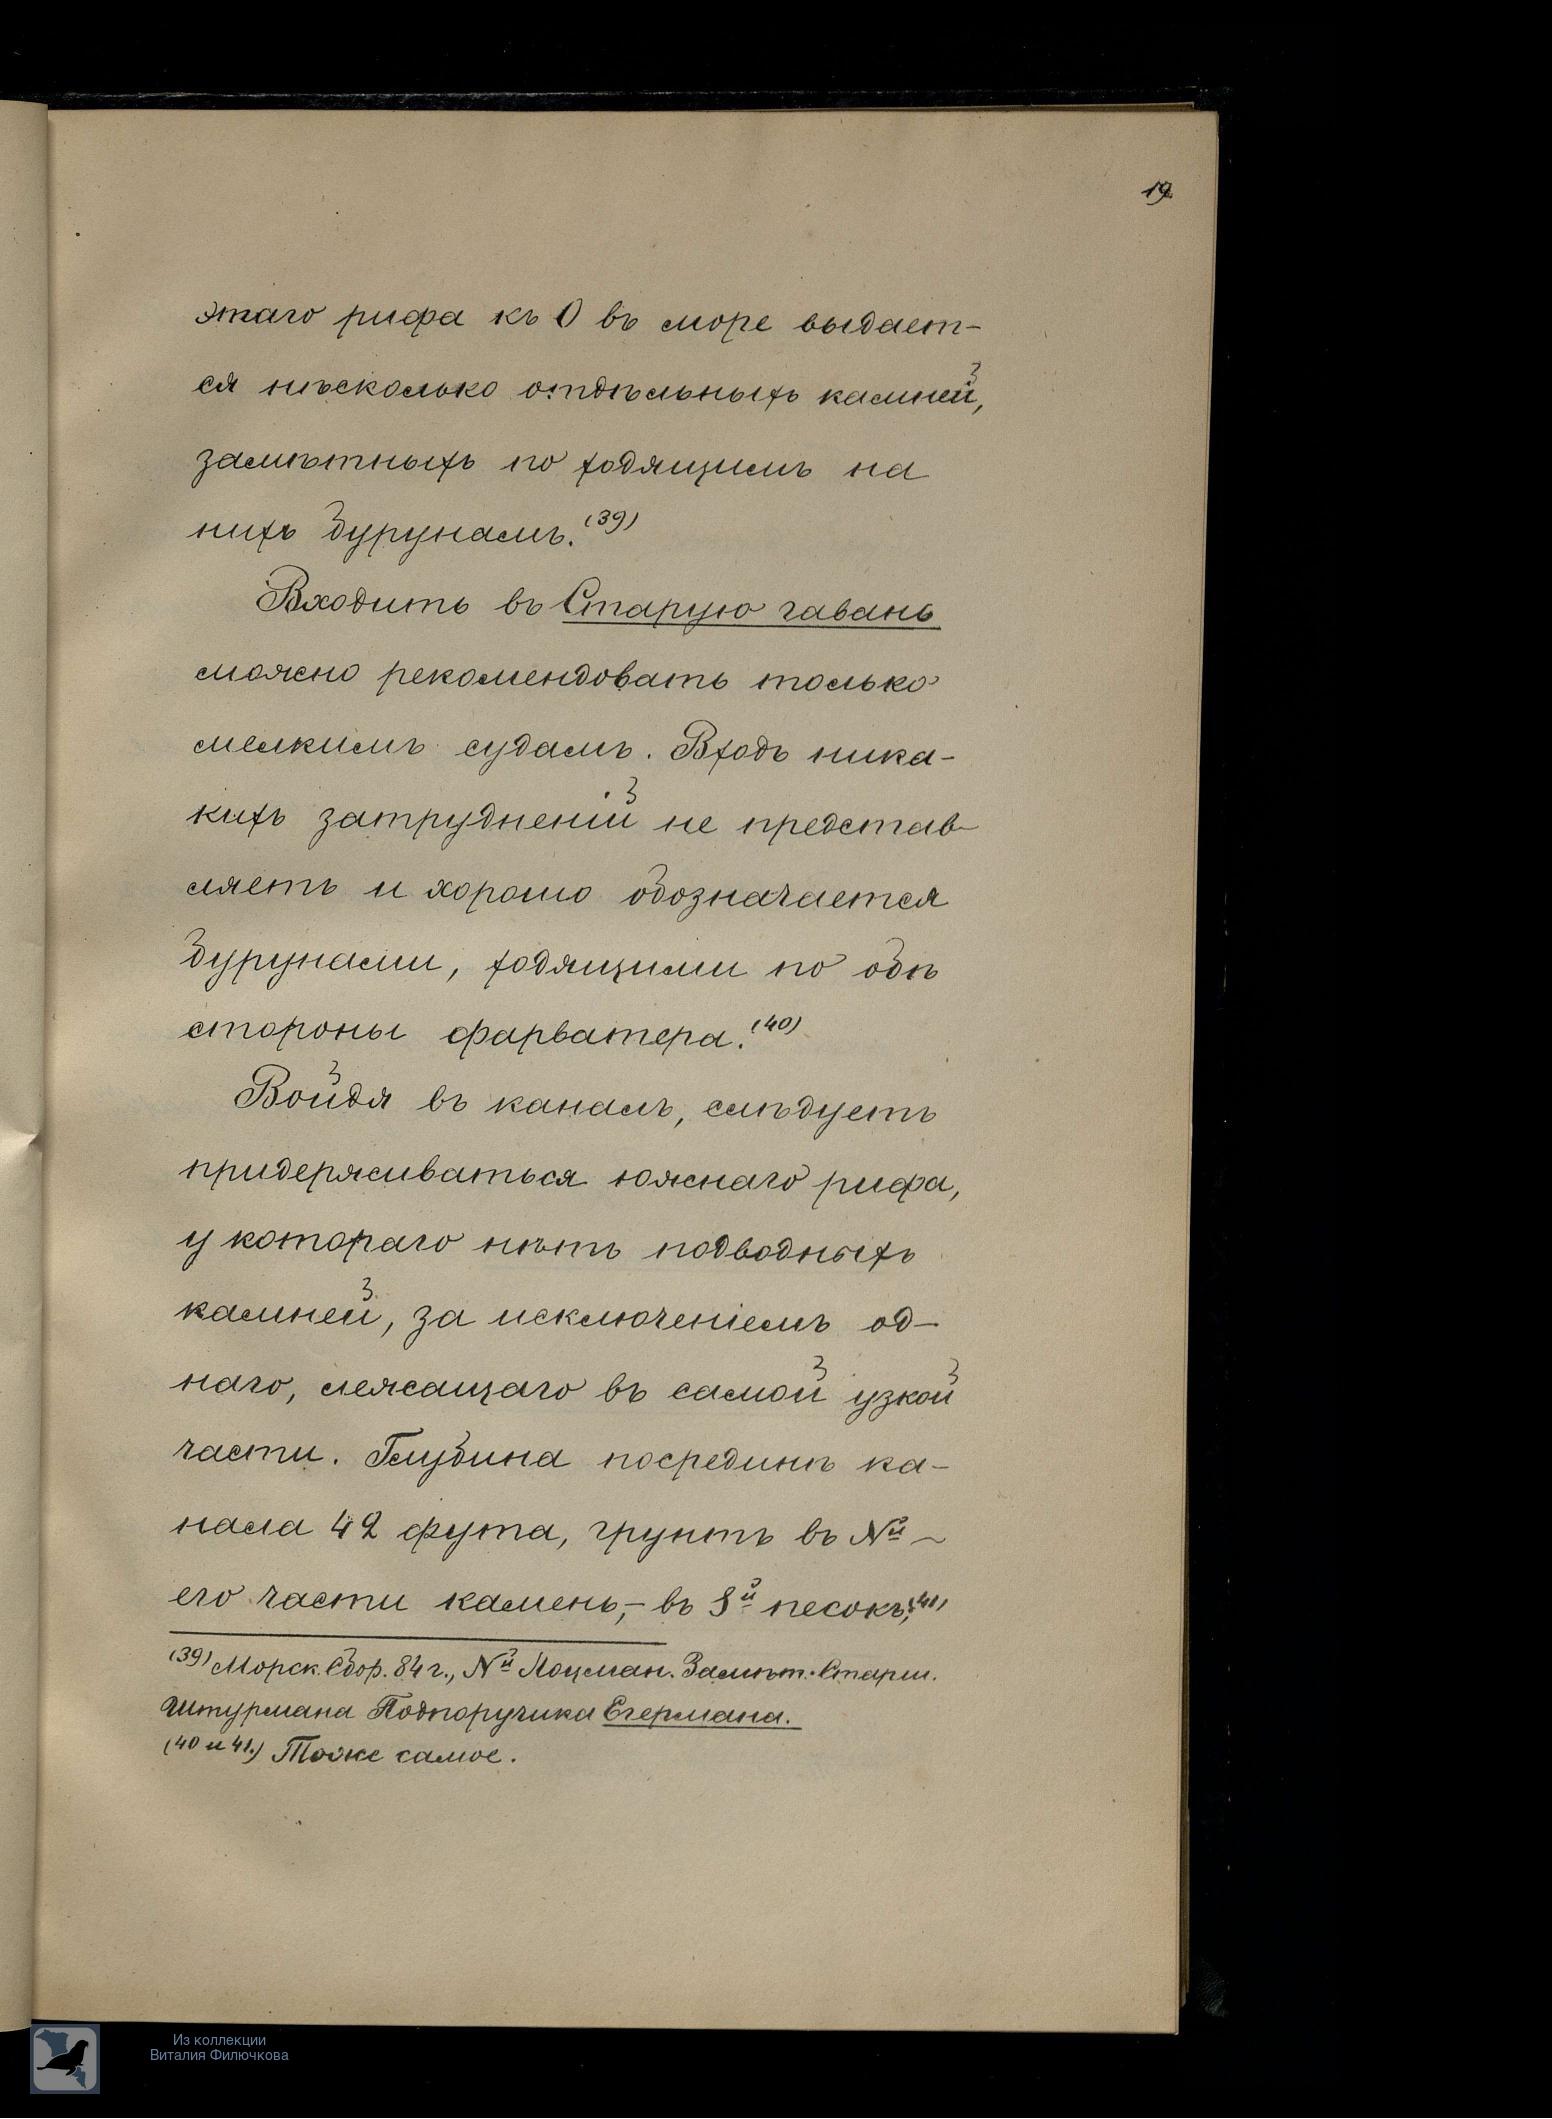 19
этаго рифа къ O въ море выдает-
ся нѣсколько отдѣльныхъ камней,
замѣтныхъ по ходящимъ на
нихъ бурунамъ.(39)
Входить въ Старую гавань
можно рекомендовать только
мелкимъ судамъ. Входъ ника-
кихъ затрудненій не представ-
ляетъ и хорошо обозначается
бурунами, ходящими по обѣ
стороны фарватера.(40)
Войдя въ каналъ, слѣдуетъ
придерживаться южнаго рифа,
у котораго нѣтъ подводныхъ
камней, за исключеніемъ од-
наго, лежащаго въ самой узкой
части. Глубина посрединѣ ка-
нала 42 фута, грунтъ въ Nй
его части камень,- въ Sй песокъ;(41)
(39) Морск. Сбор. 84 г., Nй Лоцман. Замѣт. Старш.
Штурмана Подпоручика Егермана.
(40 и 41.) Тоже самое.
Из коллекции
Виталия Филючкова